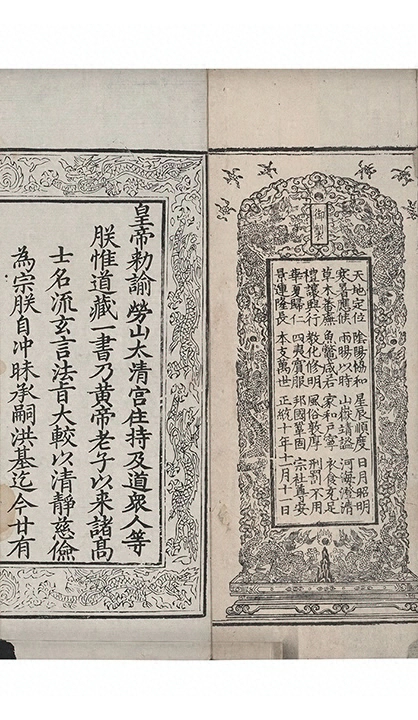 御製
天地定位 陰陽協和 星辰順度 日月昭明
寒暑應候 雨暘以時 山嶽靖謐 河海澄清
草木蕃廡 魚鱉咸若 家和戶寧 衣食充足
禮讓興行 教化修明 風俗敦厚 刑罰不用
華夏歸仁 四夷賓服 邦國鞏固 宗社奠安
景運隆長 本支萬世 正統十年十一月十一日
皇帝勅諭 勞山太清宮住持及道衆人等
朕惟道藏一書乃黃帝老子以来諸髙
士名流玄言法旨大較以清靜慈儉
為宗朕自冲昧承嗣洪基迄今廿有